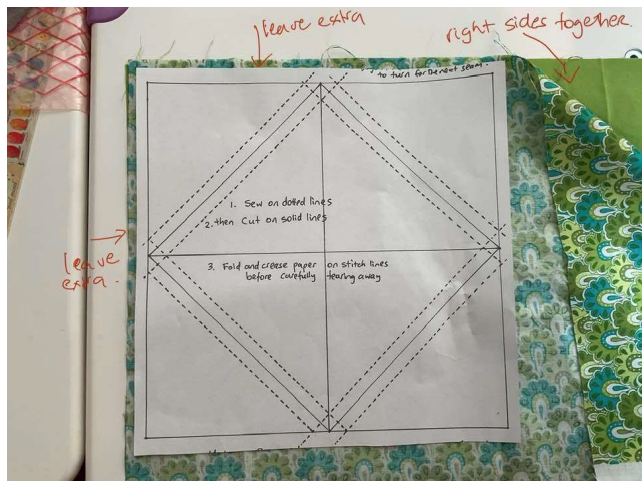 leave extra
right sides together
to turn for the next seam.
1. Sew on dotted lines
2. then Cut on solid lines
3. Fold and crease paper on stitch lines
before carefully tearing away
leave
extra.